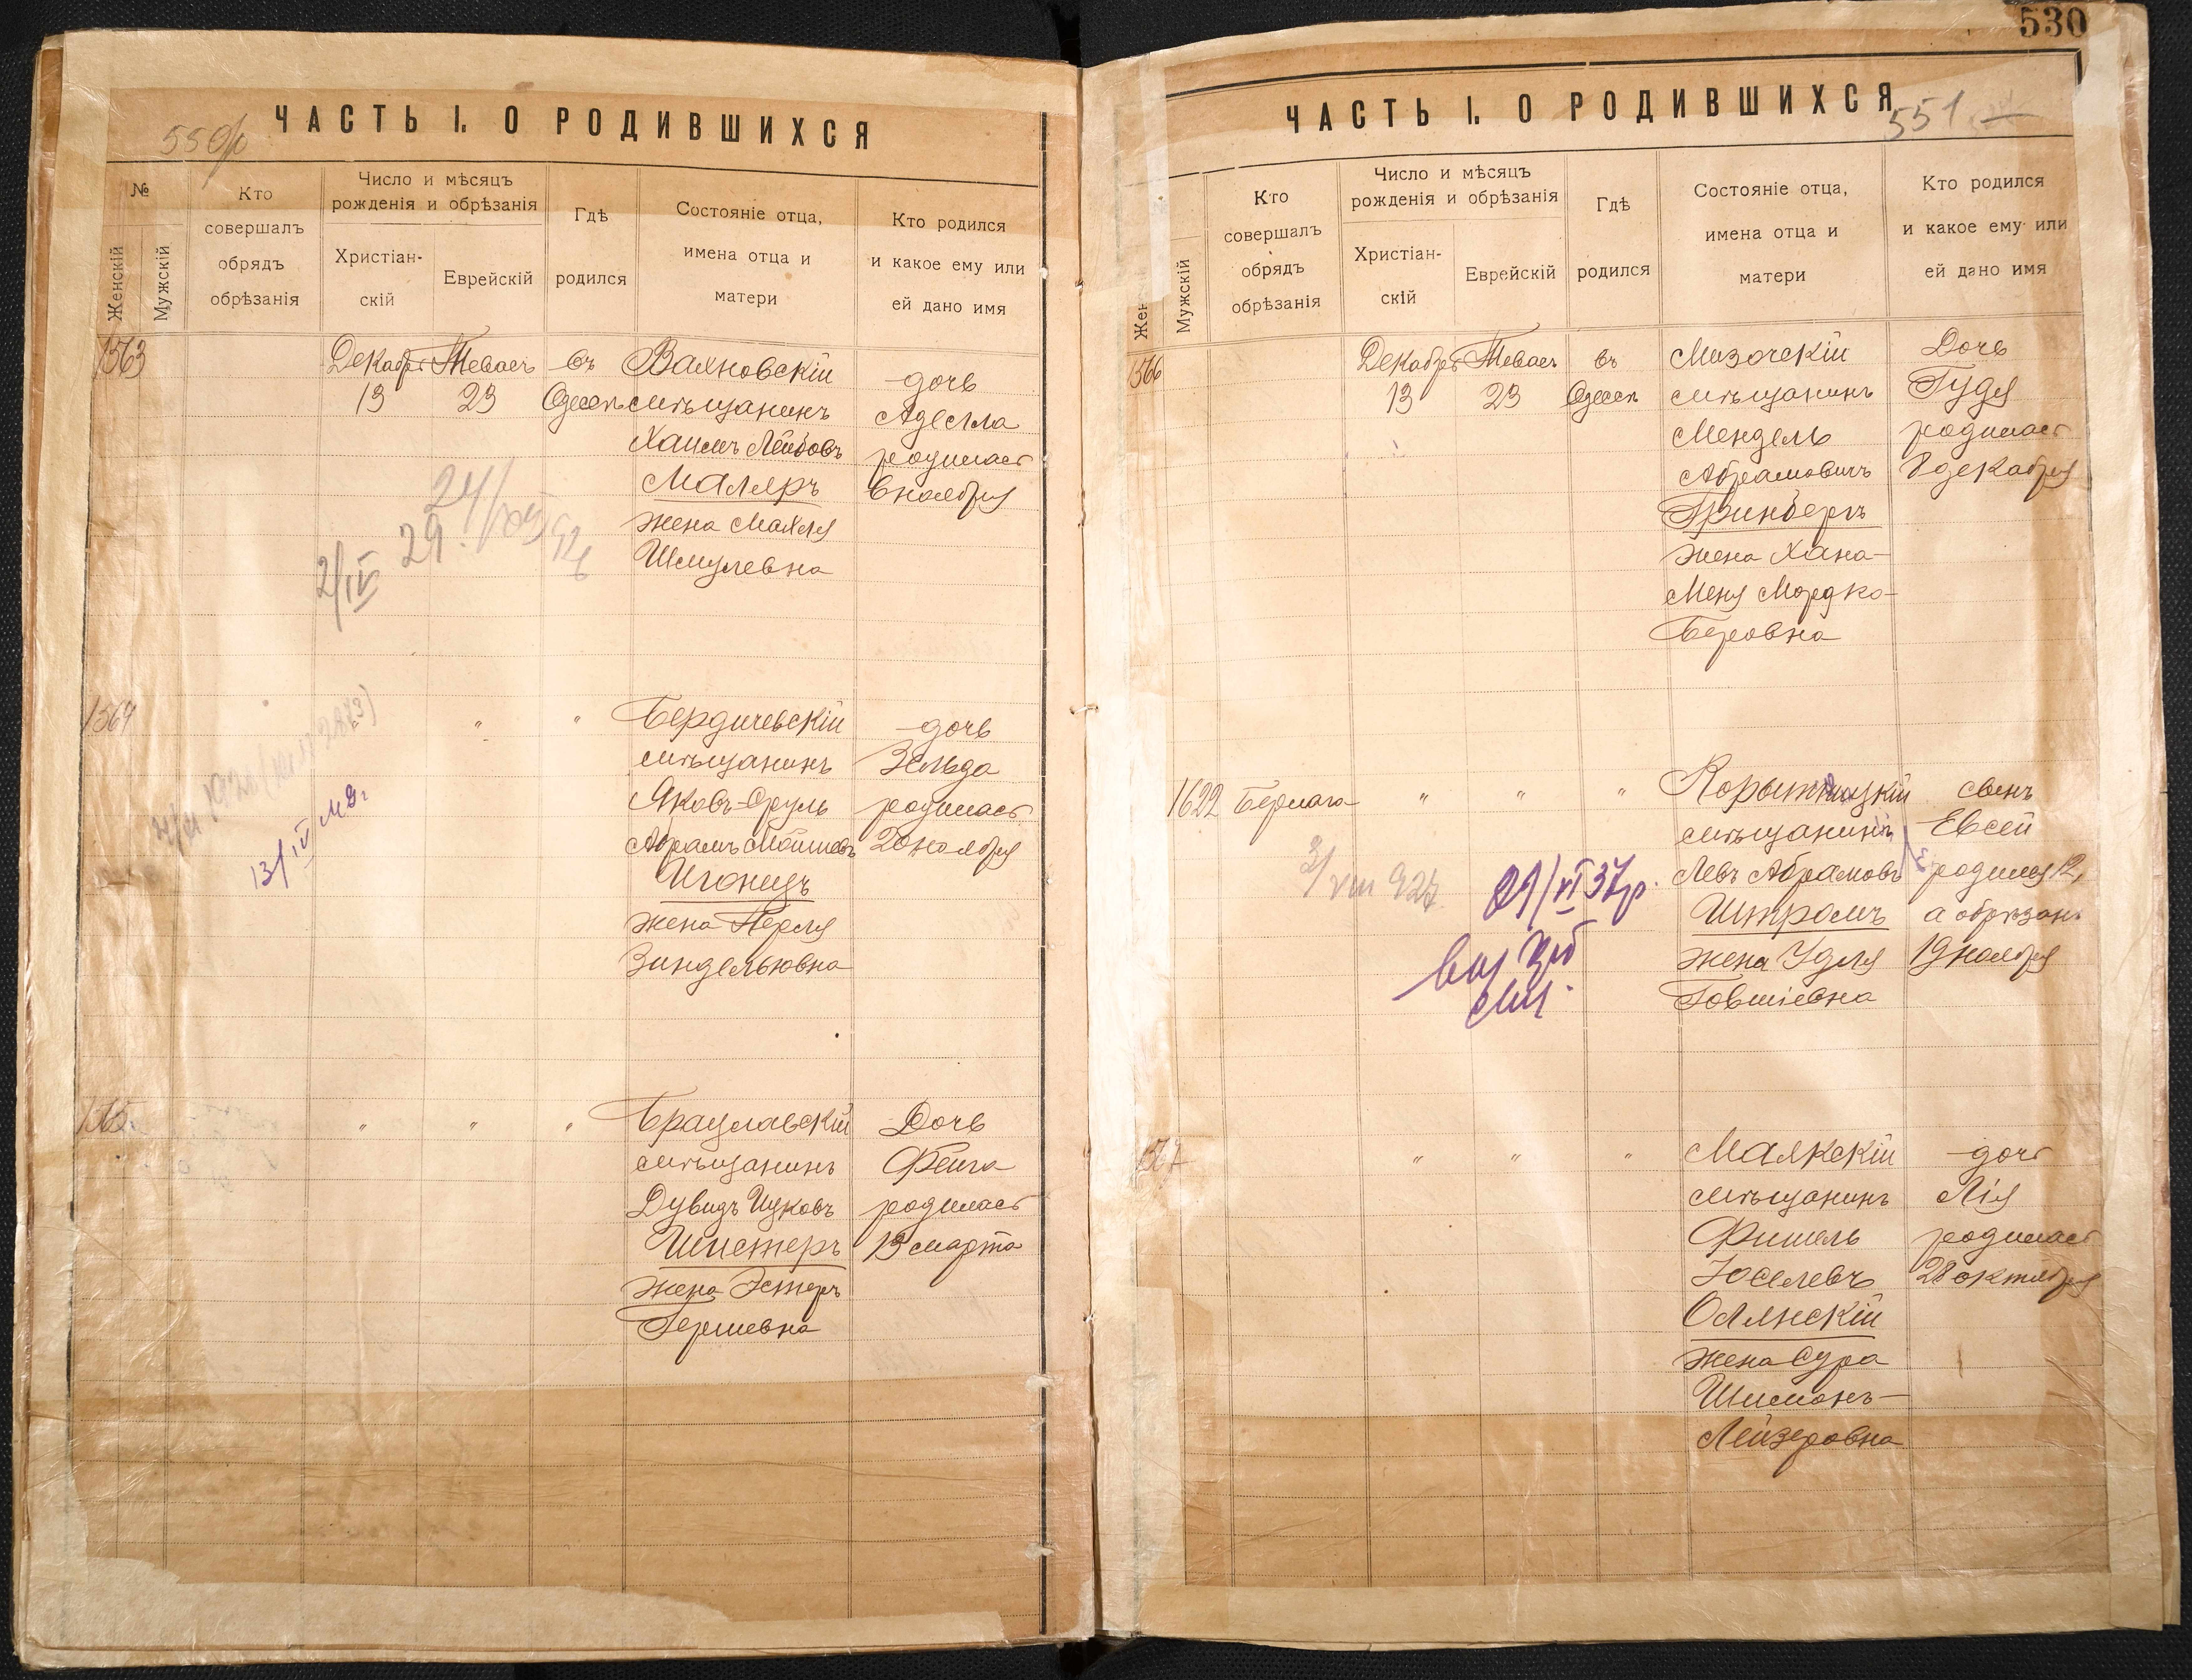 ЧАСТЬ I. О РОДИВШИХСЯ
№
Женскій
Мужскій
Кто
совершалъ
обрядъ
обрѣзанія
Число и мѣсяцъ
рожденія и обрѣзанія
Христіан-
скій
Еврейскій
Гдѣ
родился
Состояніе отца,
имена отца и
матери
Кто родился
и какое ему или
ей дано имя
1563
Декабря
13
Теваеъ
23
въ
Одессѣ
Вахновскій
мѣщанинъ
Хаимъ Лейбовъ
Маляръ
жена Махля
Шмулевна
дочь
Аделла
родилась
6 ноября
2/IV 29.
1564
" "
Бердичевскій
мѣщанинъ
Яковъ-Сруль
Абрамъ Мошковъ
Игоницъ
жена Перля
Зиндельювна
дочь
Зельда
родилась
20 ноября
13/IV
1565.
" " "
Брацлавскій
мѣщанинъ
Дувидъ Ицковъ
Шистеръ
жена Эстеръ
Гершевна
Дочь
Фейга
родилась
13 марта
530
ЧАСТЬ I. О РОДИВШИХСЯ
551
Жен
Мужскій
Кто
совершалъ
обрядъ
обрѣзанія
Число и мѣсяцъ
рожденія и обрѣзанія
Христіан-
скій
Еврейскій
Гдѣ
родился
Состояніе отца,
имена отца и
матери
Кто родился
и какое ему или
ей дано имя
1566
Декабря
13
Теваеъ
23
въ
Одессѣ
Мизочскій
мѣщанинъ
Мендель
Абрамовичъ
Гринбергъ
жена Хана-
Меня Мордко-
Беровна
Дочь
Гудя
родилась
8 декабря
1622
" " "
мѣщанинъ
Левъ Абрамовъ
Штромъ
жена Удля
Говшіевна
сынъ
Евсей
родился 12,
а обрѣзанъ
19 ноября
3/VIII 927
21/VI 37р.
1567
" " "
Маякскій
мѣщанинъ
Фишель
Іоселевъ
Олянскій
жена Сура
Шимонъ-
Лейзеровна
дочь
Лія
родилась
28 октября